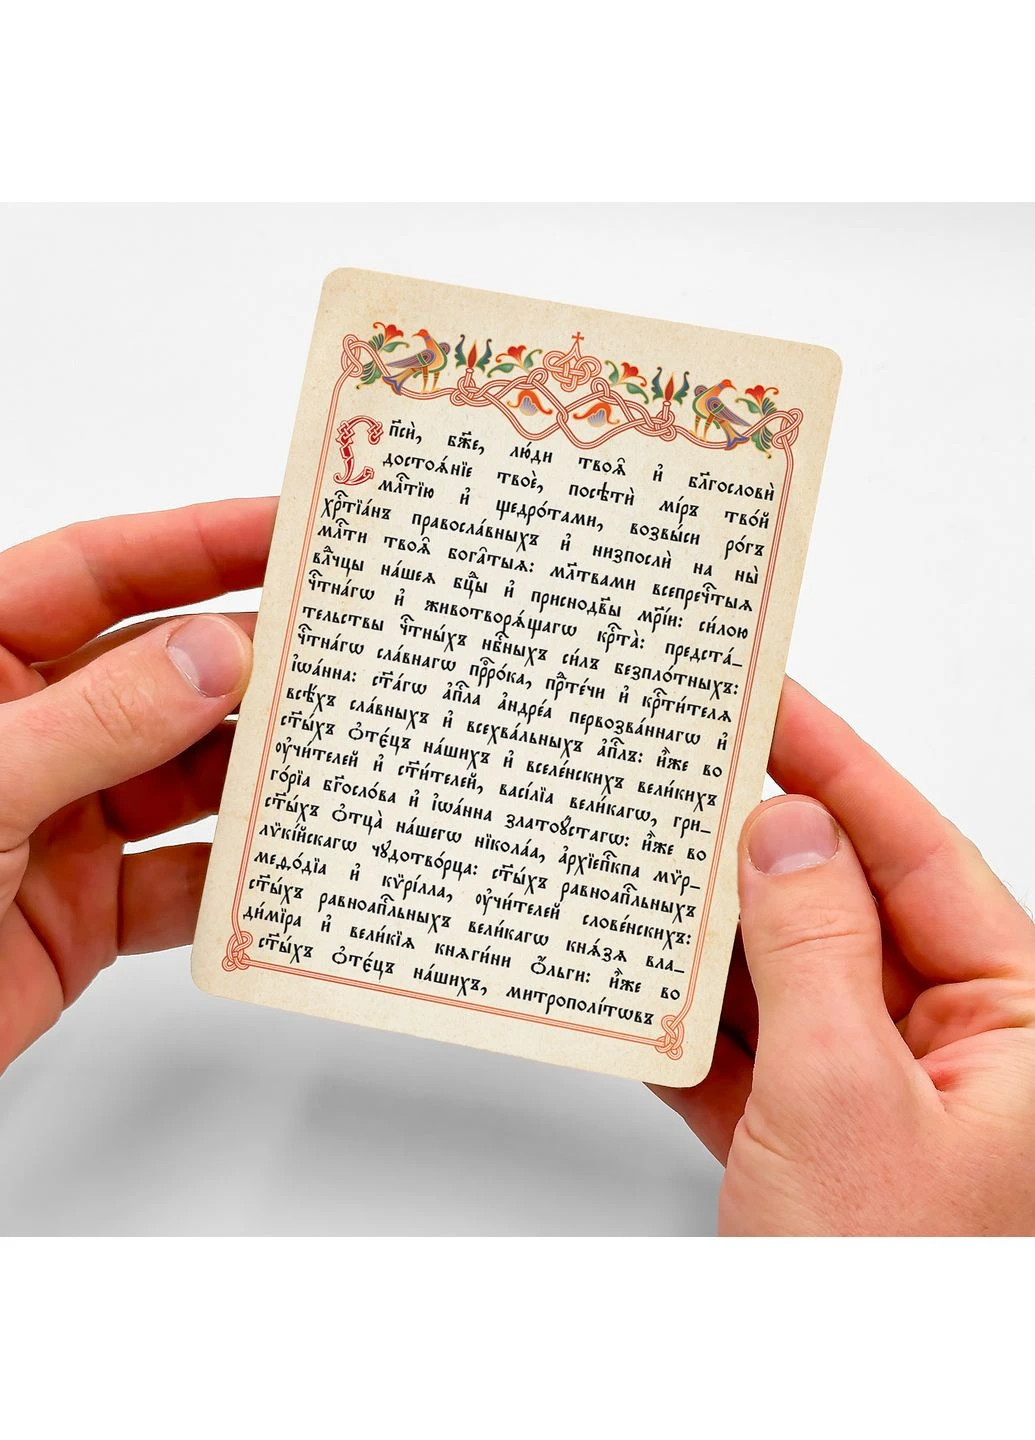 Сп҃сѝ, бж҃е, лю́ди твоѧ̑ и҆ бл҃гословѝ
достоѧ́нїе твоѐ, посѣтѝ мі́ръ тво́й
мл҃тїю и҆ щедро́тами, возвы́си ро́гъ
хрⷭ҇тїа́нъ правосла́вныхъ и҆ низпослѝ на ны̀
млⷭ҇ти твоѧ̑ бога̑тыѧ: мл҃твами всепречⷭ҇тыѧ
влⷣчцы на́шеѧ бцⷣы и҆ приснодв҃ы мр҃і́и: си́лою
чⷭ҇тна́гѡ и҆ животворѧ́щагѡ крⷭ҇та̀: предста́_
тельствы чⷭ҇тны́хъ нбⷭ҇ныхъ си́лъ безпло́тныхъ:
чⷭ҇тна́гѡ сла́внагѡ прⷪ҇ро́ка, прⷣте́чи и҆ крⷭ҇ти́телѧ
і҆ѡа́нна: ст҃а́гѡ а҆пⷭ҇ла а҆ндре́а первозва́ннагѡ и҆
всѣ́хъ сла́вныхъ и҆ всехва́льныхъ а҆пⷭ҇лъ: и҆̀же во
ст҃ы́хъ ѻ҆те́цъ на́шихъ и҆ вселе́нскихъ вели́кихъ
ᲂу҆чи́телей и҆ ст҃и́телей, васі́лїа вели́кагѡ, гри_
го́рїа бг҃осло́ва и҆ і҆ѡа́нна златоꙋ́стагѡ: и҆̀же во
ст҃ы́хъ ѻ҆тца̀ на́шегѡ нїкола́а, а҆рхїепⷭ҇кпа мѷр_
лѷкі́йскагѡ чꙋдотво́рца: ст҃ы́хъ равноапⷭ҇льныхъ
меѳо́дїа и҆ кѷрі́лла, ᲂу҆чи́телей слове́нскихъ:
ст҃ы́хъ равноапⷭ҇льныхъ вели́кагѡ кнѧ́зѧ вла_
ди́мїра и҆ вели́кїѧ кнѧги́ни ѻ҆́льги: и҆̀же во
ст҃ы́хъ ѻ҆те́цъ на́шихъ, митрополі́тѡвъ